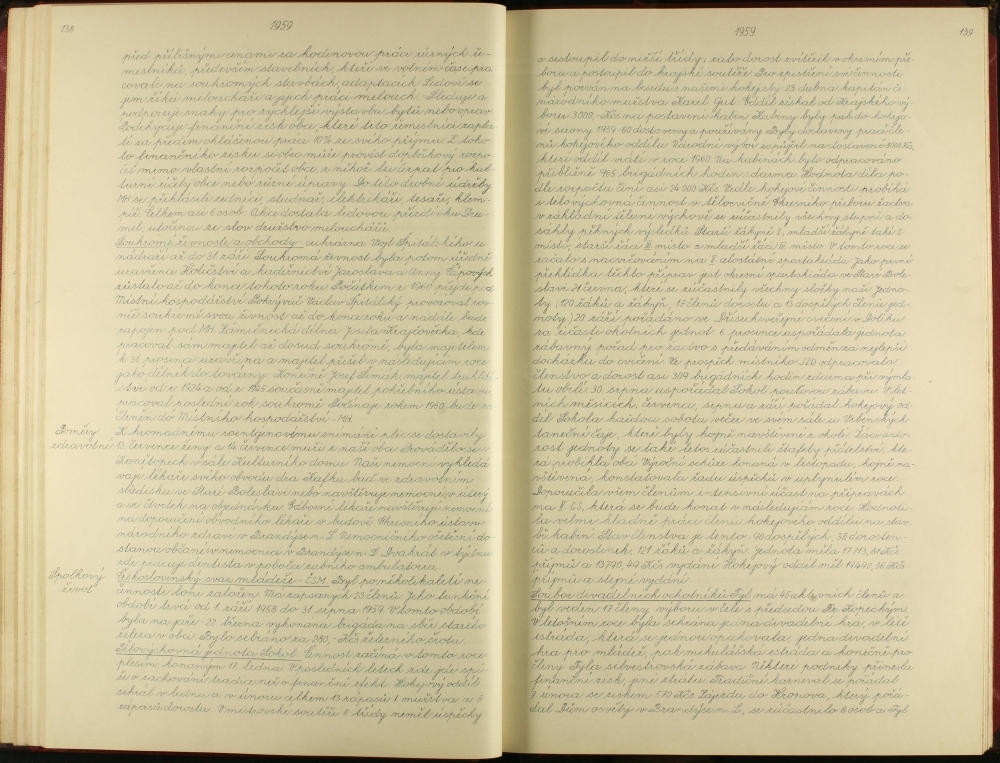 138
1959
před přílišnými cenami za hodinovou práci různých ře-
meslníků, především stavebních, kteří ve volném čase pra-
covali na soukromých stavbách, adaptacích. Lidově se
jim říká melouchaři a jejich práci melouch. Sleduje a
podporuje snahy pro rychlejší výstavbu bytů nebo oprav.
Podchycuje finanční zisk obce, které tito řemeslníci zapla-
tí za předem ohlášenou práci 10% ze svého příjmu. Z toho-
to finančního zisku si obec může provést doplňkový rozpo-
čet mimo vlastní rozpočet obce, z něhož lze čerpat pro kul-
turní účely obce nebo různé úpravy. Do této drobné údržby
MH se přihlásili zedníci, studnař, elektrikáři, tesaři, klem-
píř. Celkem asi 6 osob. Akce dostala lidovou přezdívku Dru-
mel, utvořenou ze slov družstvo melouchářů.
Soukromé živnosti a obchody: cukrárna Vojt. Špitálského u
nádraží až do 31. září. Soukromá živnost byla potom úředně
uzavřena. Holičství a kadeřnictví Jaroslava a Anny
zůstalo až do konce tohoto roku. Počátkem r. 1960 přejde pod
Místní hospodářství. Pokrývač Václav Špitálský provozoval rov-
něž soukromě svou živnost až do konce roku a nadále bude
zapojen pod MH. Zámečnická dílna Josefa Krajčovička, kde
pracoval sám majitel až dosud soukromě, byla majitelem
k 31. prosinci uzavřena a majitel přešel v následujícím roce
jako dělník do továrny. Konečně Josef Šimák, majitel truhlář-
ství od r. 1924 a od r. 1945 současně majitel pohřebního ústavu
pracoval poslední rok soukromě. Počínaje rokem 1960 bude za-
členěn do Místního hospodářství - MH.
Poměry
zdravotní
K hromadnému roentgenovému snímání plic se dostavily
13. července ženy a 14. července muži z naší obce. Provádělo se v
Konětopech v sále Kulturního domu. Naši nemocní vyhledá-
vají lékaře svého obvodu dra Kafku buď ve zdravotním
středisku ve Staré Boleslavi nebo navštěvuje nemocné v úterý
a ve čtvrtek na objednávku. Odborní lékaři navštěvují nemocní
na doporučení obvodního lékaře v budově Okresního ústavu
národního zdraví v Brandýse n. L. Nemocničního ošetření do-
stanou občané v nemocnici v Brandýse n. L. Dvakrát v týdnu
zde pracuje dentista v pobočce zubního ambulatoria.
Spolkový
život
Československý svaz mládeže - ČSM. Byl po několikaleté ne-
činnosti loni založen. Má zapsaných 23 členů. Jeho funkční
období trvá od 1. září 1958 do 31. srpna 1959. V tomto období
byla na jaře 22. března vykonána brigáda na sběr starého
železa v obci. Bylo sebráno za 280,- Kčs železného šrotu.
Tělovýchovná jednota Sokol. Činnost začíná v tomto roce
plesem konaným 17. ledna. V posledních letech zde jde spí-
še o zachování tradice než o finanční efekt. Hokejový oddíl
sehrál v lednu a v únoru celkem 13 zápasů I. mužstva a 6
zápasů dorostu. V mistrovské soutěži II. třídy neměl úspěchy
1959
139
a sestoupil do nižší třídy; zato dorost zvítězil v okresním pře-
boru a postoupil do krajské soutěže. Pro zpestření své činnosti
byl pozván na besedu s našimi hokejisty 23. dubna kapitán čs.
národního mužstva Karel Gut. Oddíl získal od Krajského vý-
boru 3000,- Kčs na postavení kabin. Kabiny byly pak do hokejo-
vé sezony 1959-60 dostavěny a používány. Byly dostavěny prací čle-
nů hokejového oddílu. Národní výbor zapůjčil na dostavění 3000 Kčs,
které oddíl vrátí v roce 1960. Na kabinách bylo odpracováno
přibližně 965 brigádních hodin zdarma. Hodnota díla po-
dle rozpočtu činí asi 24 000 Kčs. Vedle hokejové činnosti probíhá
i tělovýchovná činnost v tělocvičně. Okresního přeboru žactva
v základní tělesné výchově se účastnily všechny stupně a do-
sáhly pěkných výsledků. Starší žákyně I., mladší žákyně také I.
místo, starší žáci III. místo a mladší žáci IV. místo. V tomto roce se
začalo s nacvičováním na II. celostátní spartakiádu. Jako první
přehlídka těchto příprav jest okresní spartakiáda ve Staré Bole-
slavi 14. června, které se zúčastnily všechny složky naší jedno-
ty (120 žáků a žákyň, 17 členů dorostu a 13 dospělých členů jed-
noty). 20. září pořádáno ve Dřísech veřejné cvičení v Dolíku
za účasti okolních jednot. 6. prosince uspořádala jednota
zábavný pořad pro žactvo s předáváním odměn za nejlepší
docházku do cvičení. Ve prospěch místního JZD odpracovalo
členstvo a dorost asi 309 brigádních hodin zdarma při výmla-
tu obilí. 30. srpna uspořádal Sokol pouťovou zábavu. V let-
ních měsících, července, srpnu a září pořádal hokejový od-
díl Sokola každou sobotu večer ve svém sále u Vrbenských
taneční čaje, které byly hojně navštívené z okolí. Žáci a do-
rost jednoty se také letos zúčastnili štafety přátelství, kte-
rá probíhala obcí. Výroční schůze konaná v listopadu, hojně na-
vštívená, konstatovala řadu úspěchů v uplynulém roce.
Doporučila všem členům intensivní účast na přípravách
na II. CS, která se bude konat v následujícím roce. Hodnoti-
la velmi kladně práci členů hokejového oddílu na stav-
bě kabin. Stav členstva je tento: 90 dospělých, 36 dorosten-
ců a dorostenek, 121 žáků a žákyň. Jednota měla 17 113,81 Kčs
příjmů a 13790,49 Kčs vydání. Hokejový oddíl měl 14490,36 Kčs
příjmů a stejné vydání.
Soubor divadelních ochotníků Tyl má 45 aktivních členů a
byl veden 17 členy výboru v čele s předsedou Fr. Kopeckým.
V letošním roce byla sehrána jedna divadelní hra, v létě
estráda, která se jednou opakovala, jedna divadelní
hra pro mládež, pak mikulášská estráda a konečně pro
členy Tyla silvestrovská zábava. Některé podniky přinesly
finanční zisk, jiné ztrátu. Tradiční karneval se pořádal
7. února se ziskem 570 Kčs. Zájezdu do Hronova, který pořá-
dal Dům osvěty v Brandýse n. L., se zúčastnilo 6 osob z Tyla